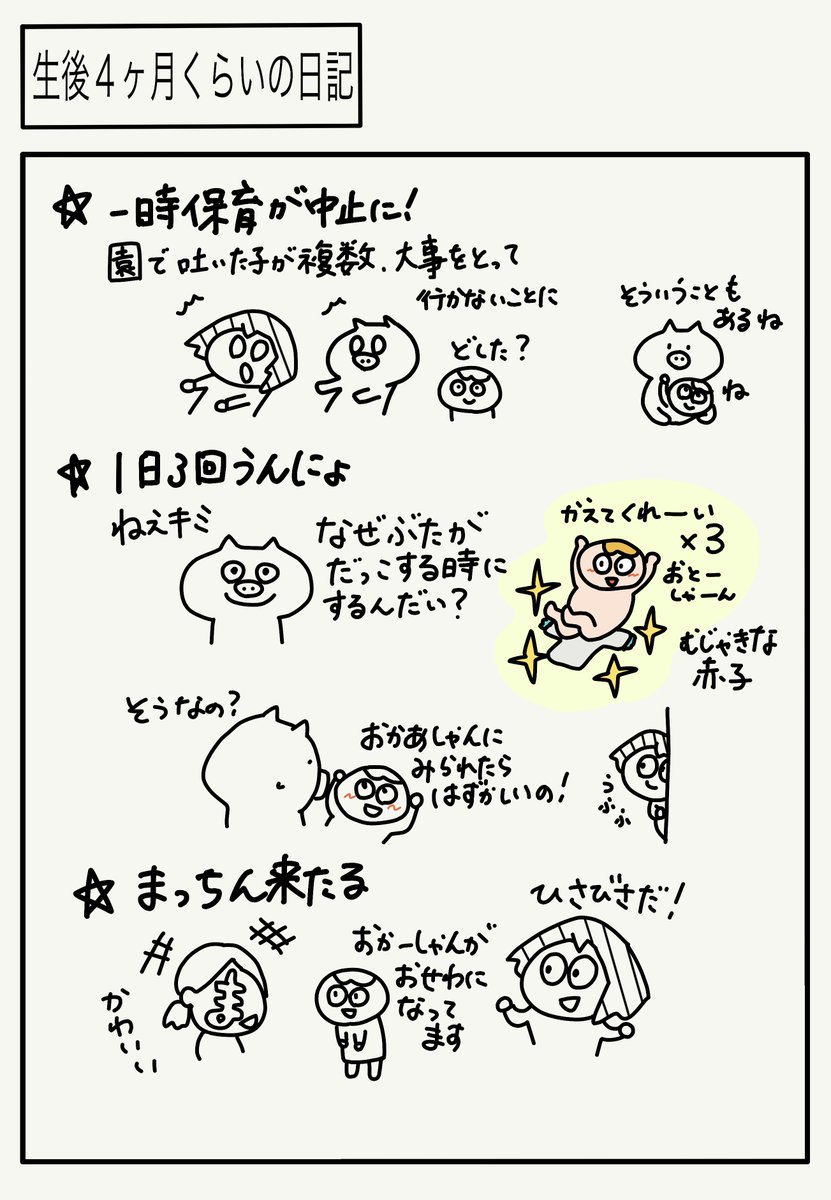 生後４ヶ月くらいの日記
☆ 一時保育が中止に！
園で吐いた子が複数、大事をとって
行かないことに
どした？
そういうことも
あるね
ね
☆ 1日3回うんにょ
ねえキミ
なぜぶたが
だっこする時に
するんだい？
かえてくれーい
×3
おとー
しゃーん
むじゃきな
赤子
そうなの？
おかあしゃんに
みられたら
はずかしいの！
うふふ
☆ まっちん来たる
かわいい
ま
おかーしゃんが
おせわに
なって
ます
ひさびさだ！